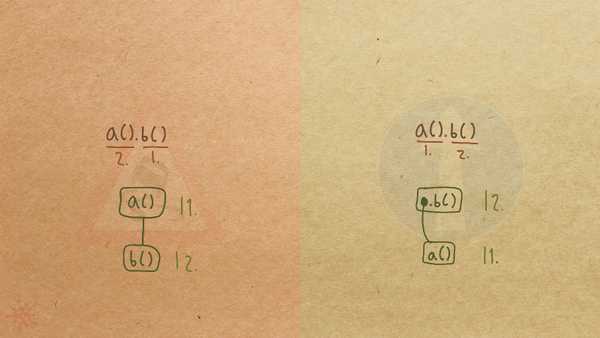 a().b()
2. 1.
a() 1.
b() 2.
a().b()
1. 2.
.b() 2.
a() 1.